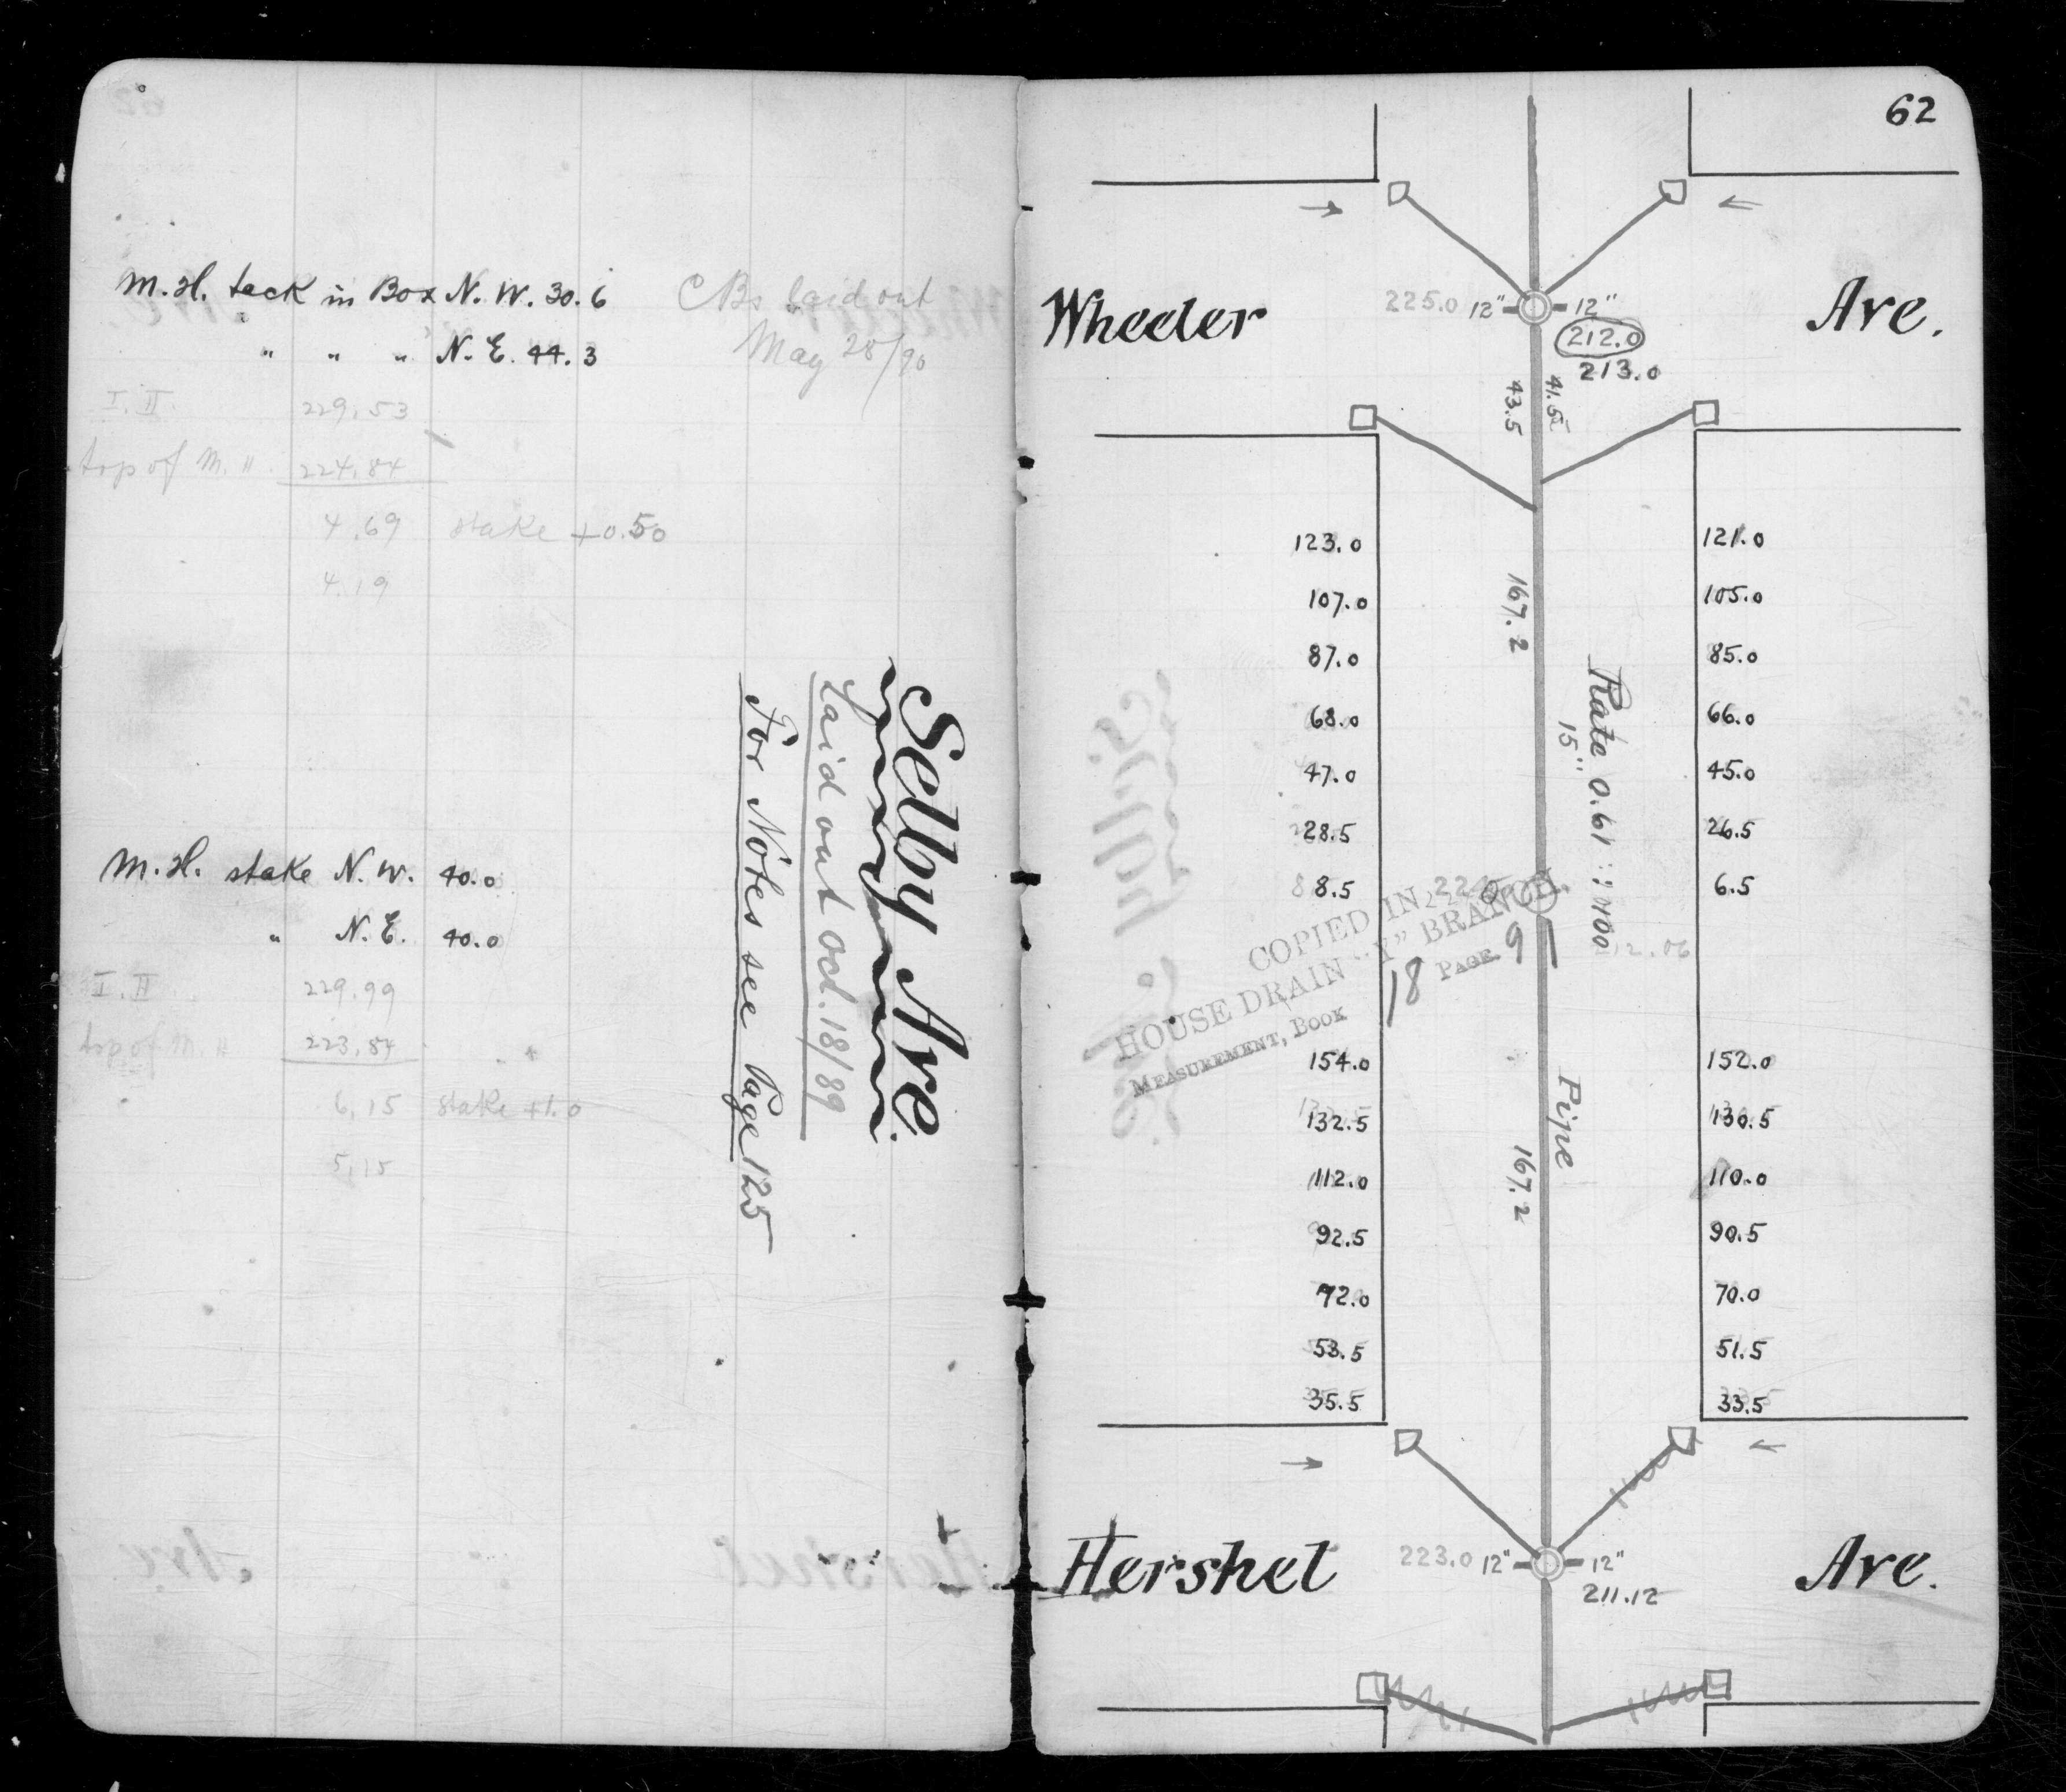 M.H. tack in Box N.W. 30.6
" " " N.E. 44.3
CBs laid out
May 28/90
I.H. 229.53
top of M.H. 224.84
4.69 stake +0.50
4.19
M.H. stake N.W. 40.0
" N.E. 40.0
I.H 229.99
top of M.H 223.84
6.15 stake +1.0
5.15
Selby Ave.
Laid out Oct. 18/89
For Notes see Page 125
62
Wheeler Ave.
225.0 12" 12"
212.0
213.0
43.5 41.5
123.0 121.0
107.0 105.0
167.2
87.0 85.0
68.0 66.0
Rate 0.61:100
15"
47.0 45.0
28.5 26.5
8.5 6.5
COPIED IN
HOUSE DRAIN "Y" BRANCH
MEASUREMENT, BOOK 18 PAGE 91
212.06
154.0 152.0
132.5 130.5
Pipe
112.0 110.0
167.2
92.5 90.5
72.0 70.0
53.5 51.5
35.5 33.5
Hershel Ave.
223.0 12" 12"
211.12